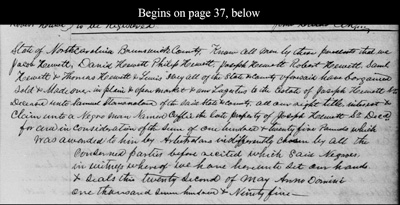 Begins on page 37, below
to be Registered
State of North Carolina Brunswick County. Know all men by these presents that we
Jacob Hewett, David Hewett Philip Hewett Joseph Hewett Robert Hewett Saml
Hewett & Thomas Hewett & Lewis say all of the State & county aforesaid have bargained
Sold & Made over in plain & open market & our Legatees to the Estate of Joseph Hewett
Deceased unto Samuel Stanaland of the Said State & County all our right title interest &
Claim unto a Negro man Named Coffie the Late property of Joseph Hewett Sr Decd
for and in Consideration of the sum of one hundred & twenty five Pounds which
was awarded to him by Arbitrators indifferently chosen by all the
Concerned parties before recited which Said Negroes
in witness whereof we have hereunto set our hands
& Seals this twenty Second of May Anno Domini
one thousand Seven hundred & Ninety five